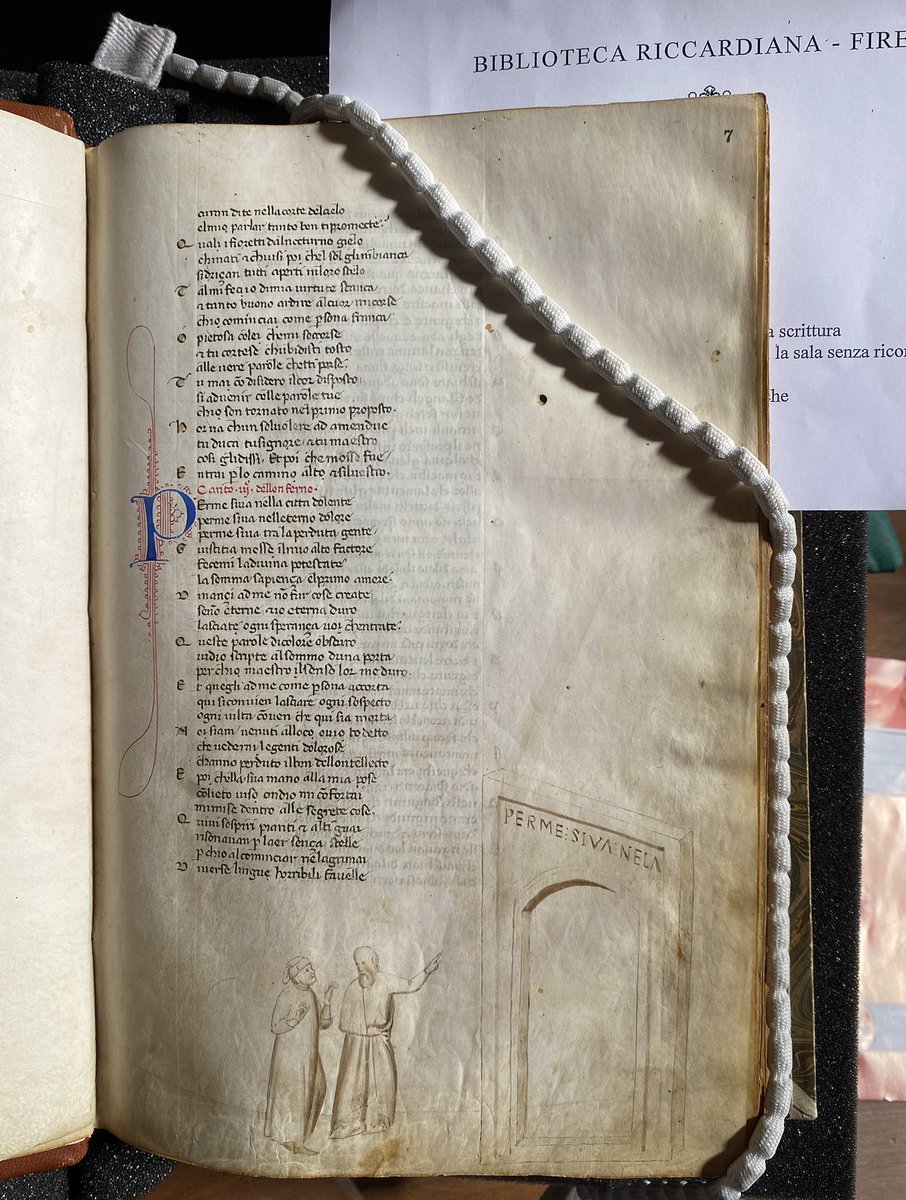 BIBLIOTECA RICCARDIANA - FIRE
7
a scrittura
la sala senza ricor
che
curan di te nella corte delcielo
elmio parlar tanto ben tipromecte
Quali i fioretti dalnocturno gielo
chinati &chiusi poi chel sol glimbianca
sidriçan tutti aperti inloro stelo
Tal mi fec io di mia virtute stanca
&tanto buono ardire alcuor micorse
chio cominciai come psona franca
O pietosa colei chemi soccorse
&tu cortese chubidisti tosto
alle vere parole chetti porse
Tu mai cō disidero ilcor disposto
sì advenir colle parole tue
chio son tornato nel primo proposto
Hor va chun sol volere ad amendue
tu duca tu signore &tu maestro
cosi glidissi. Et poi che mosso fue
Entrai plo camino alto &silvestro.
Canto .iij. dello nferno.
PErme siva nella citta dolente
perme siva nelleterno dolore
perme siva tra laperduta gente
Giustitia mosse ilmio alto factore
fecemi ladivina potestate
la somma sapiença elprimo amore
Dinançi adme nō fur cose create
senō eterne &io eterna duro
lasciate ogni sperança voi chentrate
Queste parole dicolore obscuro
vidio scripte alsommo duna porta
per chio maestro ilsenso lor me duro.
Et quegli adme come psona accorta
qui siconvien lasciare ogni sospecto
ogni vilta cōven che qui sia morta
Noi siam venuti alloco ovio to detto
che vederai legenti dolorose
channo perduto ilben dellontellecto
E poi chella sua mano alla mia pose
cōlieto viso ondio mi cōfortai
mimise dentro alle segrete cose.
Quivi sospiri pianti & alti guai
risonavan p laer sença stelle
p chio alcominciar ne lagrimai
Diverse lingue horribili favelle
PERME:SIVA:NELA